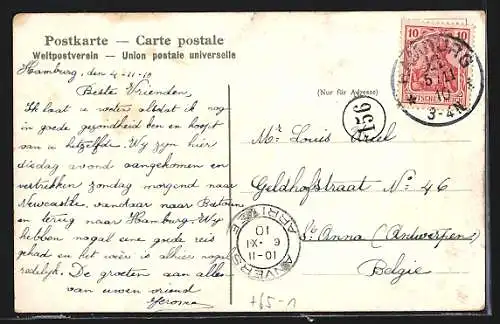 Postkarte – Carte postale
Weltpostverein – Union postale universelle
Hamburg, den 4-11-10
Beste Vrienden,
Ik laat u weten alsdat ik nog
in goede gezondheid ben en hoop
van u hetzelfde. Wy zyn hier
disdag avond aangekomen en
vertrekken zondag morgend naar
Newcastle, vandaar naar
en terug naar Hamburg. Wy
hebben nogal eene goede reis
gehad en het weer is alhier nogal
redelijk. De groeten aan allen
van uwen vriend
Jerome
(Nur für Adresse)
Mr Louis
Geldhofstraat No 46
St Anna (Antwerpen)
Belgie
156
10 10
HAMBURG
5.11
10
3-4N
ANVERS
ARRIVÉE
10-11
6 · XI
10
+65-1